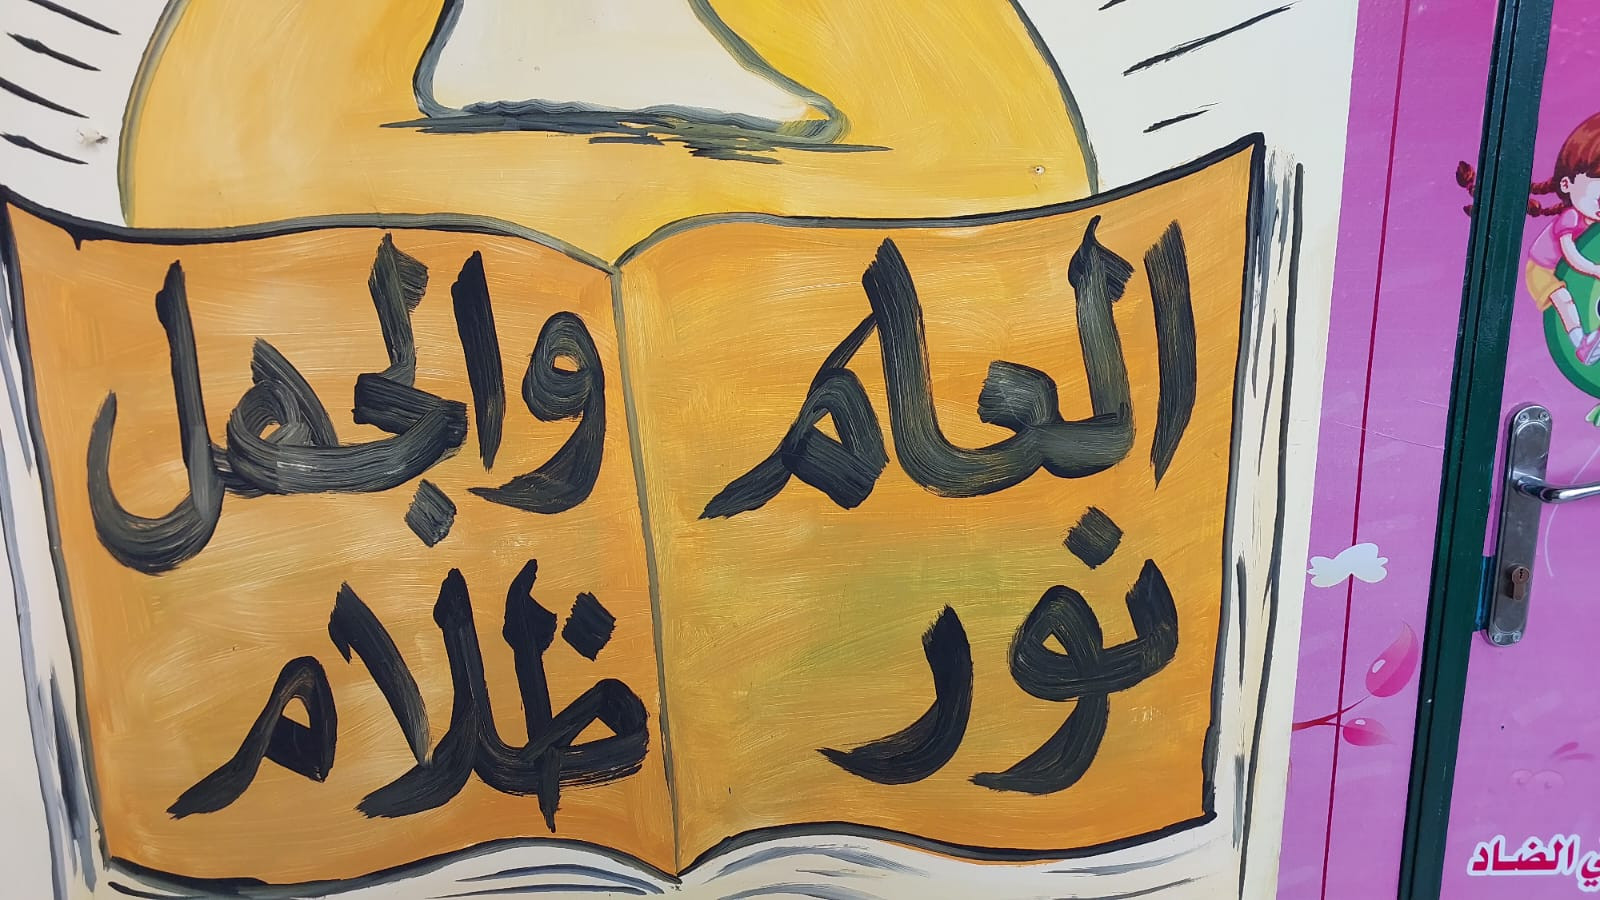 العلم
نور
والجهل
ظلام
ي الضاد